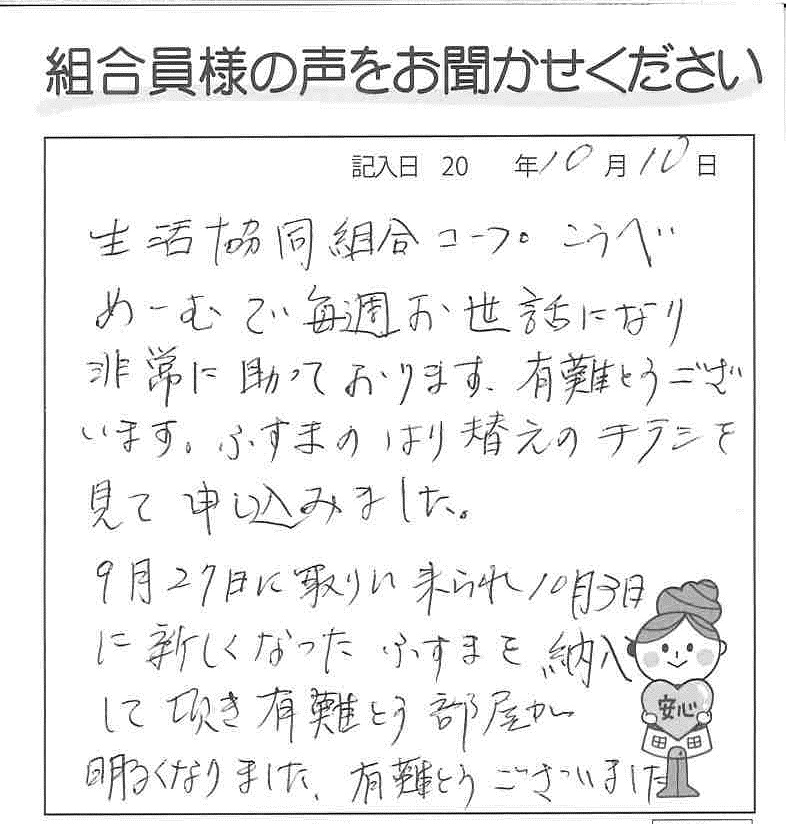 組合員様の声をお聞かせください
記入日 20 年10月10日
生活協同組合コープこうべ
めーむで毎週お世話になり
非常に助っております、有難とうござ
います。ふすまのはり替えのチラシを
見て申し込みました。
9月27日に取りに来られ10月3日
に新しくなったふすまを納入
して頂き有難とう部屋が
明るくなりました、有難とうございました
安心